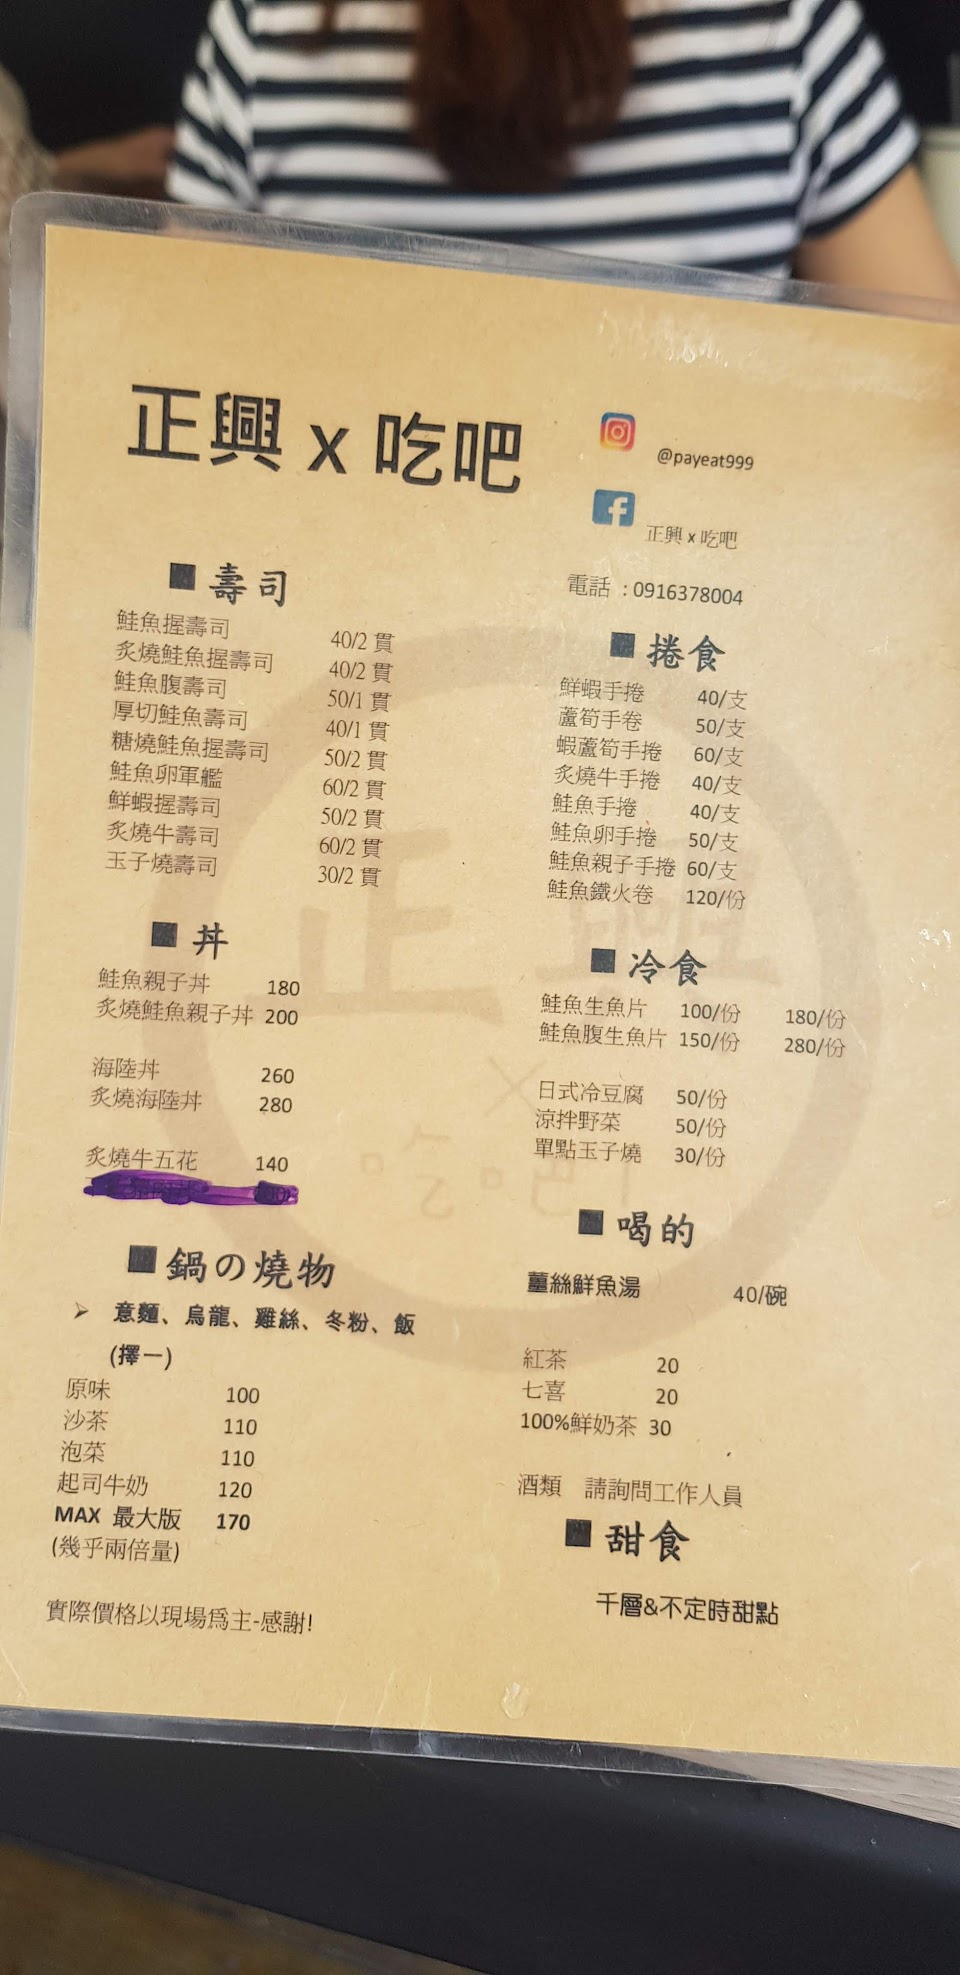 正興 x 吃吧
@payeat999
正興 x 吃吧
電話 : 0916378004
■ 壽司
鮭魚握壽司 40/2 貫
炙燒鮭魚握壽司 40/2 貫
鮭魚腹壽司 50/1 貫
厚切鮭魚壽司 40/1 貫
糖燒鮭魚握壽司 50/2 貫
鮭魚卵軍艦 60/2 貫
鮮蝦握壽司 50/2 貫
炙燒牛壽司 60/2 貫
玉子燒壽司 30/2 貫
■ 丼
鮭魚親子丼 180
炙燒鮭魚親子丼 200
海陸丼 260
炙燒海陸丼 280
炙燒牛五花 140
■ 鍋の燒物
➢ 意麵、烏龍、雞絲、冬粉、飯
(擇一)
原味 100
沙茶 110
泡菜 110
起司牛奶 120
MAX 最大版 170
(幾乎兩倍量)
實際價格以現場為主-感謝!
■ 捲食
鮮蝦手捲 40/支
蘆筍手卷 50/支
蝦蘆筍手捲 60/支
炙燒牛手捲 40/支
鮭魚手捲 40/支
鮭魚卵手捲 50/支
鮭魚親子手捲 60/支
鮭魚鐵火卷 120/份
■ 冷食
鮭魚生魚片 100/份 180/份
鮭魚腹生魚片 150/份 280/份
日式冷豆腐 50/份
涼拌野菜 50/份
單點玉子燒 30/份
■ 喝的
薑絲鮮魚湯 40/碗
紅茶 20
七喜 20
100%鮮奶茶 30
酒類 請詢問工作人員
■ 甜食
千層&不定時甜點
正興
x
吃吧